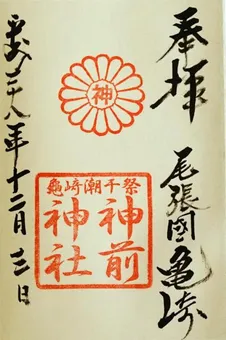 奉拝
尾張国亀崎
神
亀崎潮干祭
神前
神社
平成二十八年十二月三日